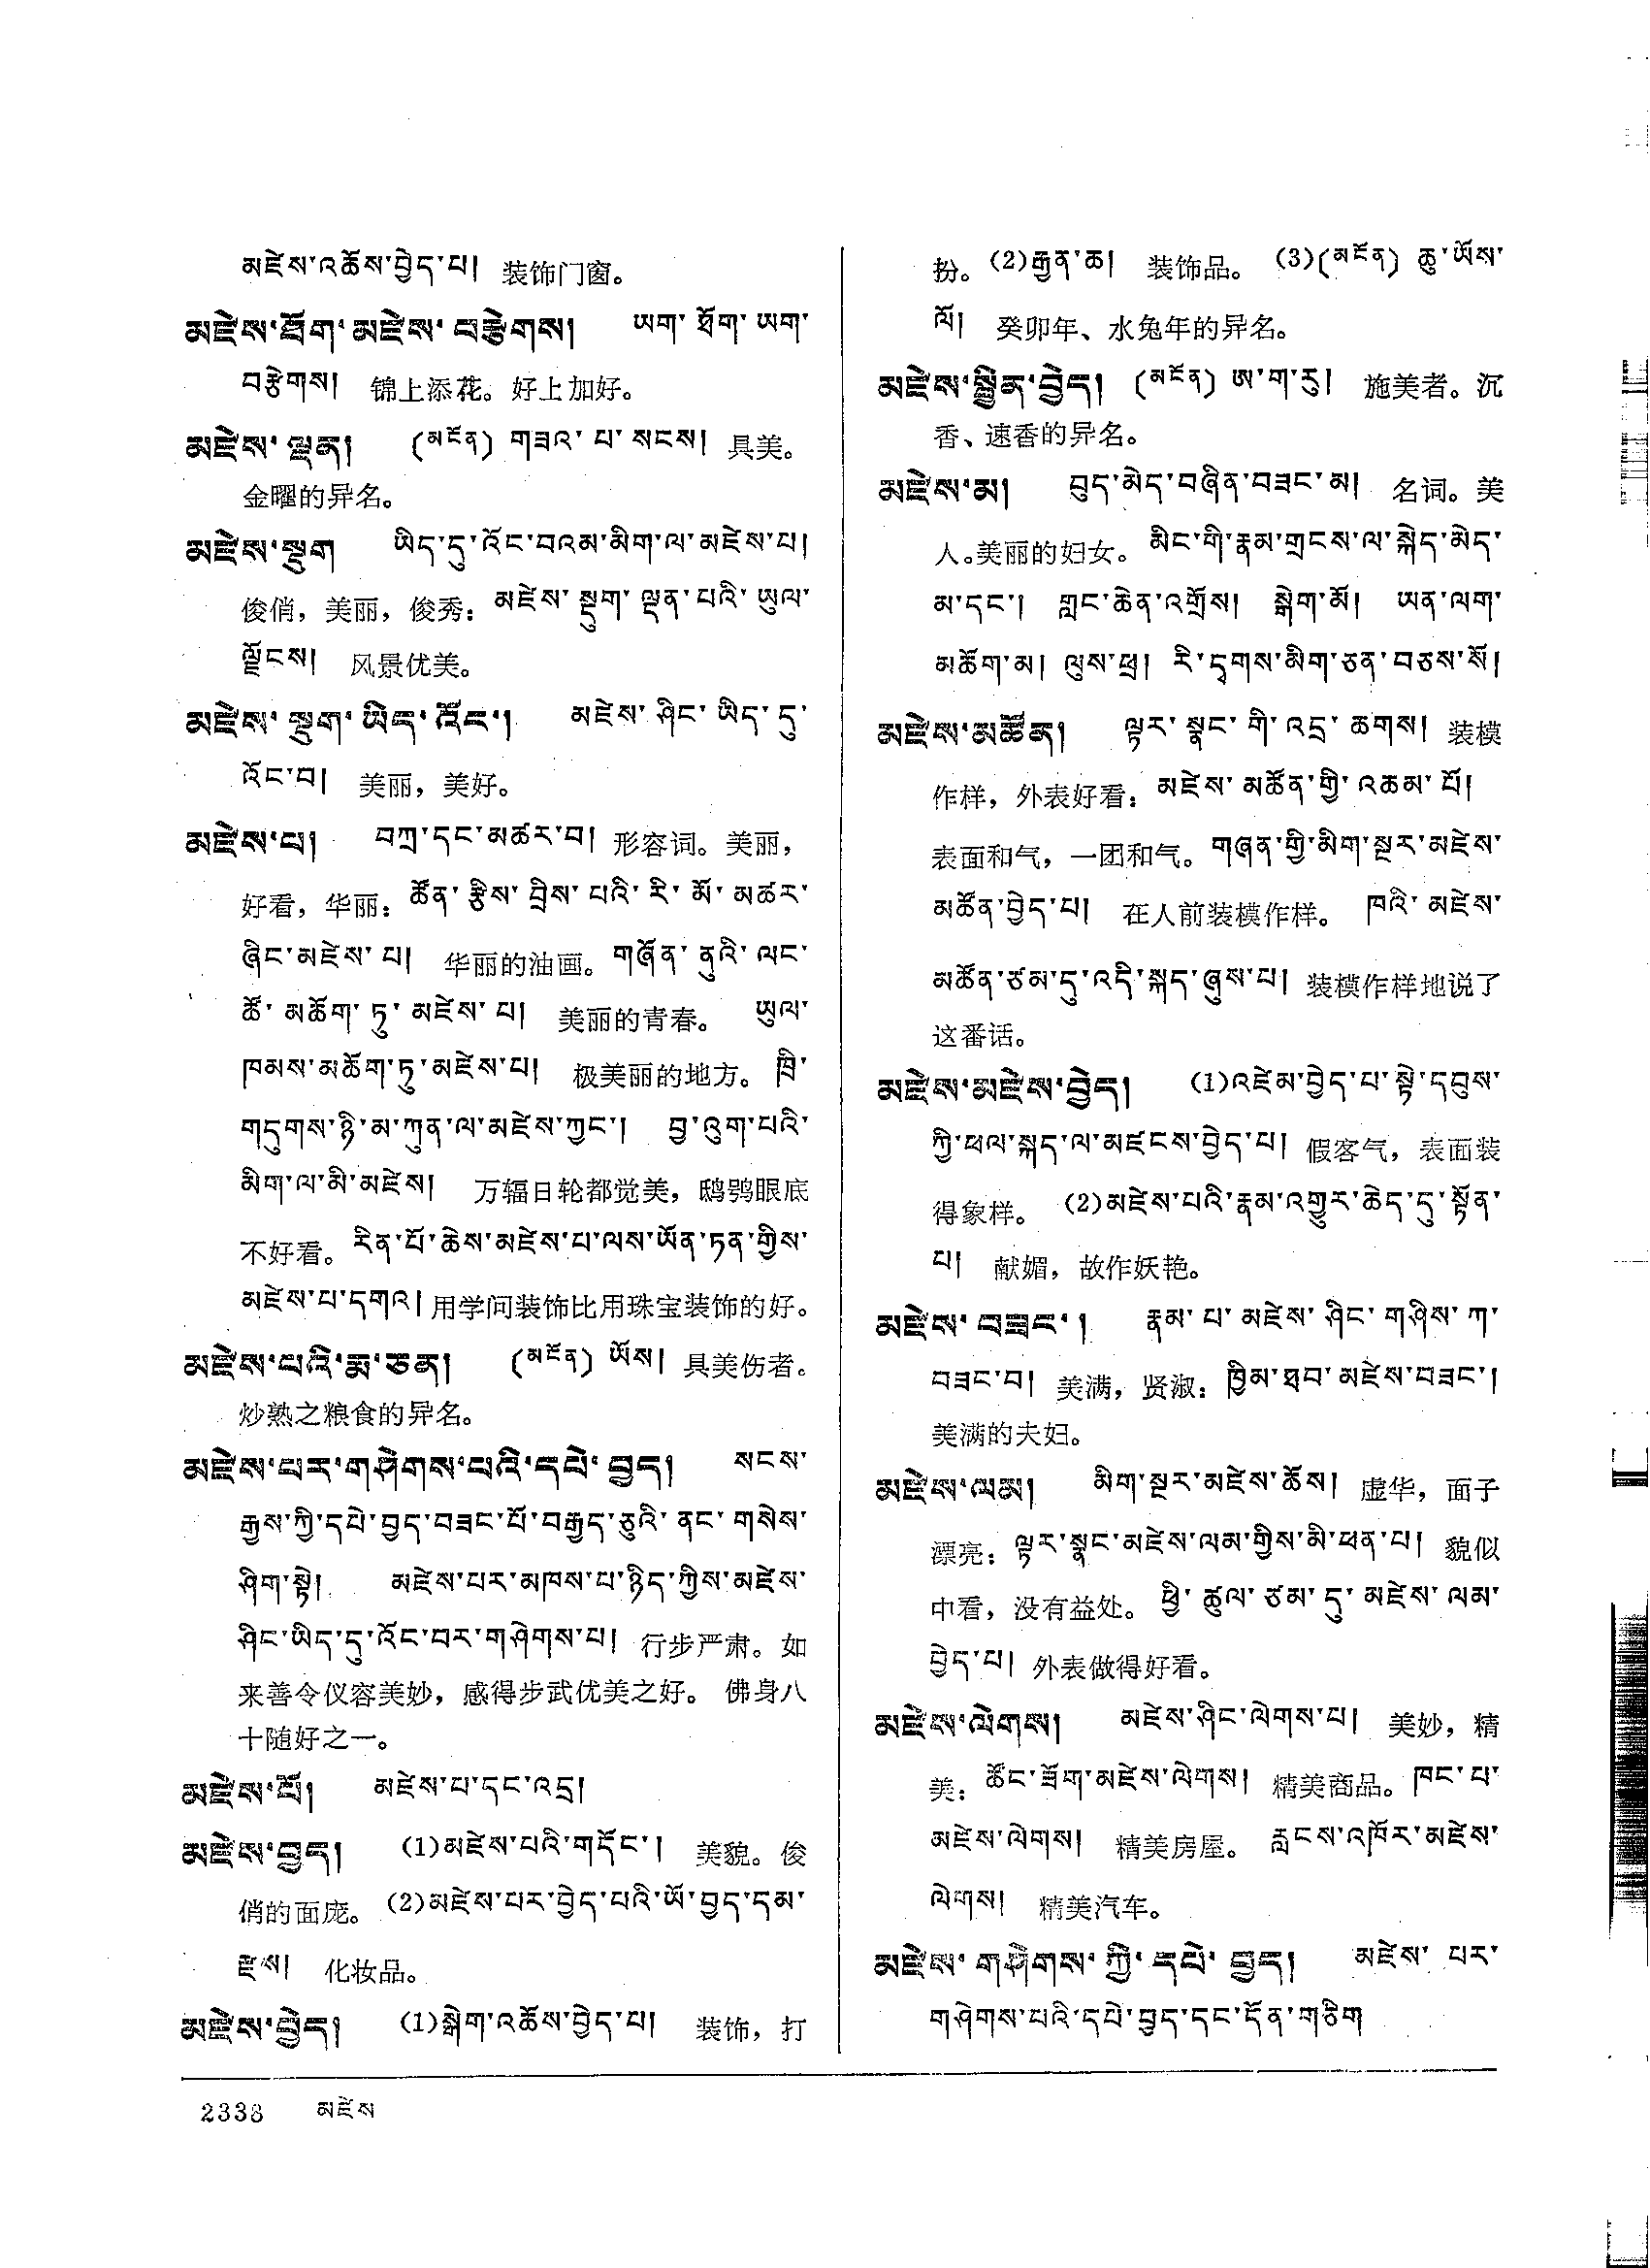 མཛེས་འཆོས་བྱེད་པ། 装饰门窗。
མཛེས་ཐོག་མཛེས་བརྩེགས། ཡག་ཐོག་ཡག་
བརྩེགས། 锦上添花。好上加好。
མཛེས་ལྡན། (མངོན) གཟའ་པ་སངས། 具美。
金曜的异名。
མཛེས་སྡུག ཡིད་དུ་འོང་བའམ་མིག་ལ་མཛེས་པ།
俊俏，美丽，俊秀：མཛེས་སྡུག་ལྡན་པའི་ཡུལ་
ལྗོངས། 风景优美。
མཛེས་སྡུག་ཡིད་འོང་། མཛེས་ཤིང་ཡིད་དུ་
འོང་བ། 美丽，美好。
མཛེས་པ། བཀྲ་དང་མཚར་བ། 形容词。美丽，
好看，华丽：ཚོན་རྩིས་བྲིས་པའི་རི་མོ་མཚར་
ཞིང་མཛེས་པ། 华丽的油画。གཞོན་ནུའི་ལང་
ཚོ་མཆོག་ཏུ་མཛེས་པ། 美丽的青春。 ཡུལ་
ཁམས་མཆོག་ཏུ་མཛེས་པ། 极美丽的地方。ཁྲི་
གདུགས་ཉི་མ་ཀུན་ལ་མཛེས་ཀྱང་། བྱ་འུག་པའི་
མིག་ལ་མི་མཛེས། 万辐日轮都觉美，鸱鸮眼底
不好看。རིན་པོ་ཆེས་མཛེས་པ་ལས་ཡོན་ཏན་གྱིས་
མཛེས་པ་དགའ། 用学问装饰比用珠宝装饰的好。
མཛེས་པའི་རྨ་ཅན། (མངོན) ཡོས། 具美伤者。
炒熟之粮食的异名。
མཛེས་པར་གཤེགས་པའི་དཔེ་བྱད། སངས་
རྒྱས་ཀྱི་དཔེ་བྱད་བཟང་པོ་བརྒྱད་ཅུའི་ནང་གསེས་
ཤིག་སྟེ། མཛེས་པར་མཁས་པ་ཉིད་ཀྱིས་མཛེས་
ཤིང་ཡིད་དུ་འོང་བར་གཤེགས་པ། 行步严肃。如
来善令仪容美妙，感得步武优美之好。佛身八
十随好之一。
མཛེས་པོ། མཛེས་པ་དང་འདྲ།
མཛེས་བྱད། (1)མཛེས་པའི་གདོང་། 美貌。俊
俏的面庞。(2)མཛེས་པར་བྱེད་པའི་ཡོ་བྱད་དམ་
རྫས། 化妆品。
མཛེས་བྱེད། (1)སྒེག་འཆོས་བྱེད་པ། 装饰，打
2338 མཛེས
扮。(2)རྒྱན་ཆ། 装饰品。 (3)(མངོན) ཆུ་ཡོས་
ལོ། 癸卯年、水兔年的异名。
མཛེས་སྦྱིན་བྱེད། (མངོན) ཨ་ག་རུ། 施美者。沉
香、速香的异名。
མཛེས་མ། བུད་མེད་བཞིན་བཟང་མ། 名词。美
人。美丽的妇女。མིང་གི་རྣམ་གྲངས་ལ་སྐེད་མེད་
མ་དང་། གླང་ཆེན་འགྲོས། སྒེག་མོ། ཡན་ལག་
མཆོག་མ། ལུས་ཕྲ། རི་དྭགས་མིག་ཅན་བཅས་སོ།
མཛེས་མཚོན། ལྟར་སྣང་གི་འདྲ་ཆགས། 装模
作样，外表好看：མཛེས་མཚོན་གྱི་འཆམ་པོ།
表面和气，一团和气。གཞན་གྱི་མིག་སྔར་མཛེས་
མཚོན་བྱེད་པ། 在人前装模作样。 ཁའི་མཛེས་
མཚོན་ཙམ་དུ་འདི་སྐད་ཞུས་པ། 装模作样地说了
这番话。
མཛེས་མཛེས་བྱེད། (1)འཛེམ་བྱེད་པ་སྟེ་དབུས་
ཀྱི་ཕལ་སྐད་ལ་མཛངས་བྱེད་པ། 假客气，表面装
得象样。 (2)མཛེས་པའི་རྣམ་འགྱུར་ཆེད་དུ་སྟོན་
པ། 献媚，故作妖艳。
མཛེས་བཟང་། རྣམ་པ་མཛེས་ཤིང་གཤིས་ཀ་
བཟང་བ། 美满，贤淑：ཁྱིམ་ཐབ་མཛེས་བཟང་།
美满的夫妇。
མཛེས་ལམ། མིག་སྔར་མཛེས་ཆོས། 虚华，面子
漂亮：ལྟར་སྣང་མཛེས་ལམ་གྱིས་མི་ཕན་པ། 貌似
中看，没有益处。 ཕྱི་ཚུལ་ཙམ་དུ་མཛེས་ལམ་
བྱེད་པ། 外表做得好看。
མཛེས་ལེགས། མཛེས་ཤིང་ལེགས་པ། 美妙，精
美：ཚོང་ཟོག་མཛེས་ལེགས། 精美商品。ཁང་པ་
མཛེས་ལེགས། 精美房屋。 རླངས་འཁོར་མཛེས་
ལེགས། 精美汽车。
མཛེས་གཤེགས་ཀྱི་དཔེ་བྱད། མཛེས་པར་
གཤེགས་པའི་དཔེ་བྱད་དང་དོན་གཅིག